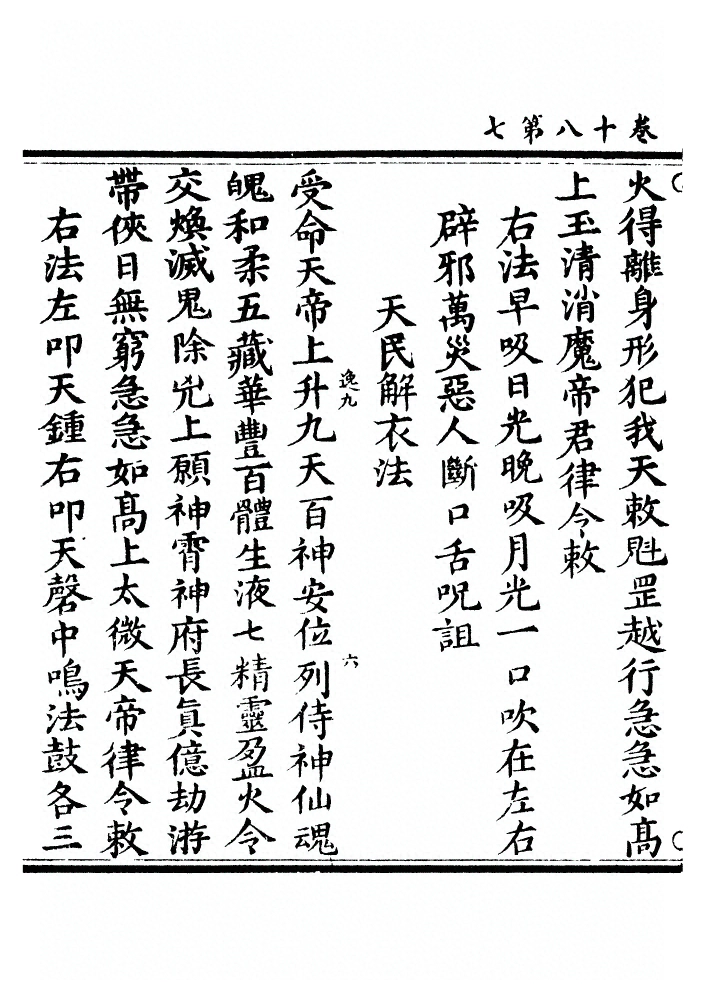 卷十八第七
火得離身形犯我天敕魁罡越行急急如高
上玉清消魔帝君律令敕
右法早吸日光晚吸月光一口吹在左右
辟邪萬災惡人斷口舌呪詛
天民解衣法
逸九
六
受命天帝上升九天百神安位列侍神仙魂
魄和柔五藏華豐百體生液七精靈盈火令
交煥滅鬼除兇上願神霄神府長眞億劫游
帶俠日無窮急急如高上太微天帝律令敕
右法左叩天鍾右叩天磬中鳴法鼓各三